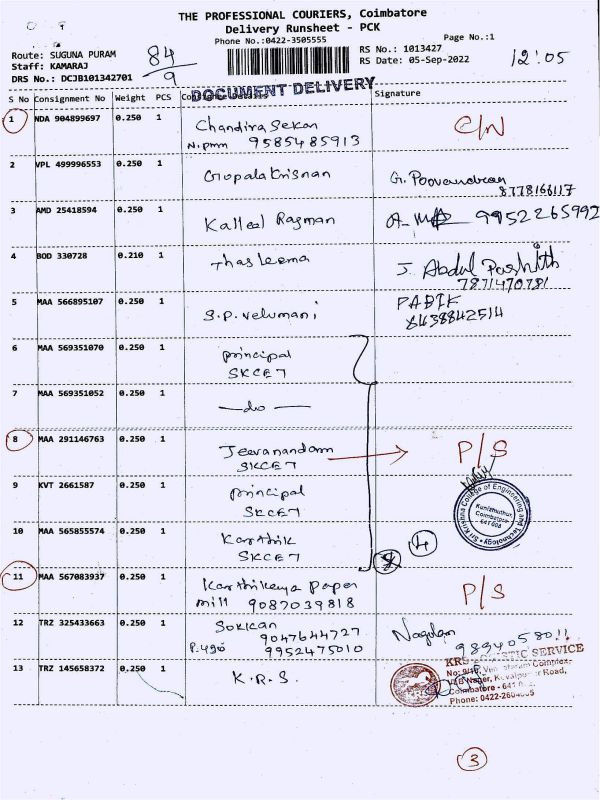 THE PROFESSIONAL COURIERS, Coimbatore
Delivery Runsheet - PCK
Phone No.:0422-3505555
Page No.:1
Route: SUGUNA PURAM
Staff: KAMARAJ
DRS No.: DCJB101342701
84
9
RS No.: 1013427
RS Date: 05-Sep-2022
12:05
DOCUMENT DELIVERY
S No Consignment No Weight PCS Signature
1 NDA 904899697 0.250 1 Chandira Sekar C/N
N.pmm 9585485913
2 VPL 499996553 0.250 1 Gopala Krisnan G.
8778166117
3 AMD 25418594 0.250 1 Kalleel Ragman 9952265992
4 BOD 330728 0.210 1 Thasleema J. Abdul
7871470781
5 MAA 566895107 0.250 1 S.P. Velumani
8438842514
6 MAA 569351070 0.250 1 principal
SKCET
7 MAA 569351052 0.250 1 —do—
8 MAA 291146763 0.250 1 Jeevanandam P/S
SKCET
9 KVT 2661587 0.250 1 principal
SKCET
Sri Krishna College of Engineering and Technology
Kuniamuthur,
Coimbatore-
641 008
10 MAA 565855574 0.250 1 Karthik
SKCET
4
11 MAA 567083937 0.250 1 Karthikeya paper P/S
mill 9087039818
12 TRZ 325433663 0.250 1 Sokkan
9047644727
9952475010
13 TRZ 145658372 0.250 1 K.R.S.
SERVICE
Complex,
Road,
Coimbatore - 641
Phone: 0422-
3